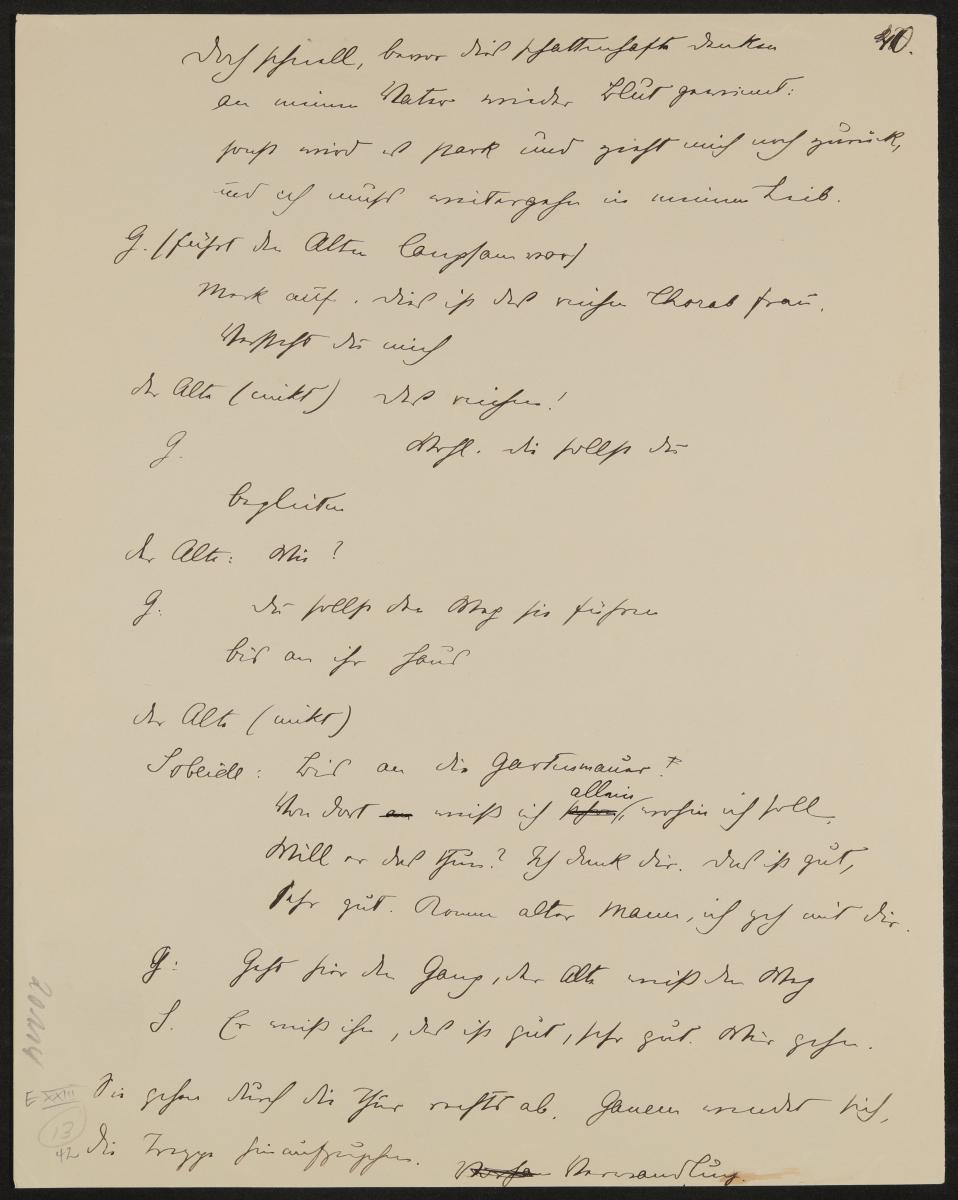 40.
Doch schnell, bevor dies schattenhafte denken
an meinen Vater wieder Blut gewinnt:
sonst wird es stark und zieht mich noch zurück,
und ich muß weitergehn in meinem Leib.
G. (führt den Alten langsam vor)
Merk auf. dies ist des reichen Chorab frau.
Verstehst du mich
der Alte (nickt) Des reichen!
G. Wohl. die sollst du
begleiten
der Alte: Wie?
G. du sollst den Weg sie führen
bis an ihr haus
der Alte (nickt)
Sobeide: Bis an die Gartenmauer?
allein
Von dort an weiß ich schon, wohin ich soll.
Will er das thun? Ich dank dir. das ist gut,
sehr gut. Komm alter Mann, ich geh mit dir.
G: Geht hier den Gang, der Alte weiß den Weg
S. Er weiß ihn, das ist gut, sehr gut. Wir gehn.
Sie gehen durch die Thür rechts ab. Ganem wendet sich,
die Treppe hinaufzugehen. Verwandlung.
E XXIII
13
42